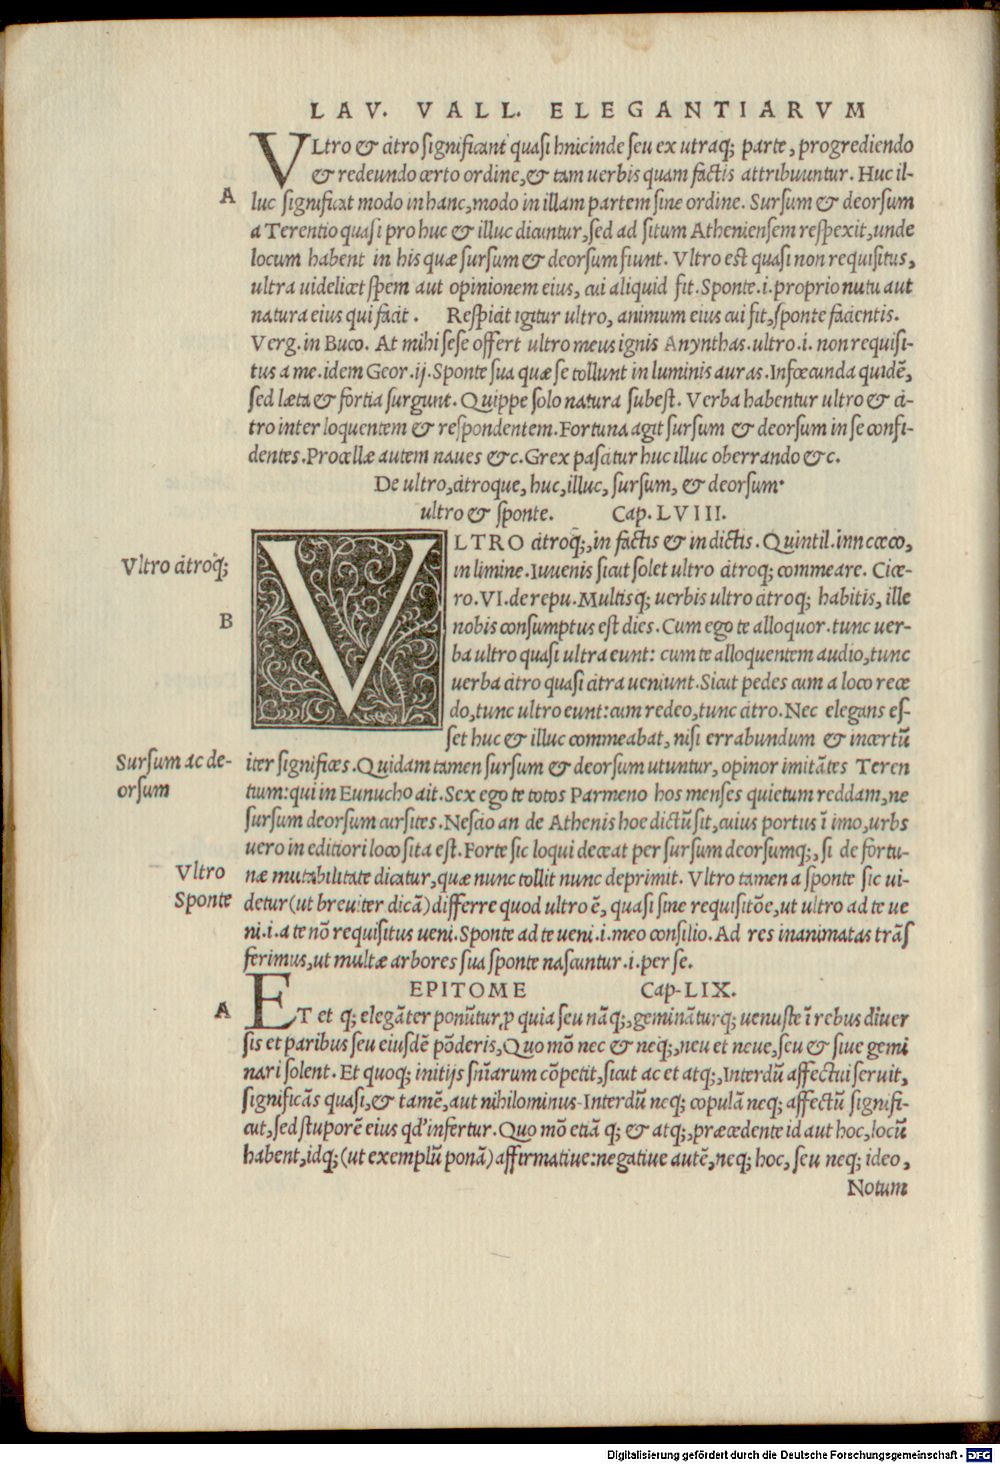 LAV. VALL. ELEGANTIARVM
VLtro & citro significant quasi hnicinde seu ex utraq; parte, progrediendo
& redeundo certo ordine, & tam uerbis quam factis attribuuntur. Huc il-
A
luc significat modo in hanc, modo in illam partem sine ordine. Sursum & deorsum
a Terentio quasi pro huc & illuc dicuntur, sed ad situm Atheniensem respexit, unde
locum habent in his quæ sursum & deorsum fiunt. Vltro est quasi non requisitus,
ultra uidelicet spem aut opinionem eius, cui aliquid fit. Sponte.i.proprio nutu aut
natura eius qui facit. Respiciat igitur ultro, animum eius cui fit, sponte facientis.
Verg. in Buco. At mihi sese offert ultro meus ignis Anynthas.ultro.i. non requisi-
tus a me.idem Geor.ij. Sponte sua quæ se tollunt in luminis auras. Infœcunda quidē,
sed læta & fortia surgunt. Quippe solo natura subest. Verba habentur ultro & ci-
tro inter loquentem & respondentem. Fortuna agit sursum & deorsum in se confi-
dentes. Procellæ autem naues &c. Grex pascitur huc illuc oberrando &c.
De ultro, citroque, huc, illuc, sursum, & deorsum.
ultro & sponte. Cap. LVIII.
Vltro citroq̃;
VLTRO citroq̃;, in factis & in dictis. Quintil. inn cœco,
in limine. Iuuenis sicut solet ultro citroq; commeare. Cice-
ro. VI. de repu. Multisq; uerbis ultro citroq; habitis, ille
B
nobis consumptus est dies. Cum ego te alloquor. tunc uer-
ba ultro quasi ultra eunt: cum te alloquentem audio, tunc
uerba citro quasi citra ueniunt. Sicut pedes cum a loco rece
do, tunc ultro eunt: cum redeo, tunc citro. Nec elegans es-
set huc & illuc commeabat, nisi errabundum & incertū
Sursum ac de-
orsum
iter significes. Quidam tamen sursum & deorsum utuntur, opinor imitātes Teren
tium: qui in Eunucho ait. Sex ego te totos Parmeno hos menses quietum reddam, ne
sursum deorsum cursites. Nescio an de Athenis hoc dictū sit, cuius portus ī imo, urbs
uero in editiori loco sita est. Forte sic loqui deceat per sursum deorsumq;, si de fortu-
Vltro
Sponte
næ mutabilitate dicatur, quæ nunc tollit nunc deprimit. Vltro tamen a sponte sic ui-
detur (ut breuiter dicā) differre quod ultro ē, quasi sine requisitōe, ut ultro ad te ue
ni.i.a te nō requisitus ueni. Sponte ad te ueni.i.meo consilio. Ad res inanimatas trās
ferimus, ut multæ arbores sua sponte nascuntur.i.per se.
EPITOME Cap-LIX.
A
ET et q; elegāter ponūtur, ꝓ quia seu nāq;, geminātur q; uenuste ī rebus diuer
sis et paribus seu eiusdē pōderis, Quo mō nec & neq;, neu et neue, seu & siue gemi
nari solent. Et quoq; initijs sñiarum cōpetit, sicut ac et atq;, Interdū affectui seruit,
significās quasi, & tamē, aut nihilominus-Interdū neq; copulā neq; affectū signifi-
cat, sed stuporē eius qd' infertur. Quo mō etiā q; & atq;, præcedente id aut hoc, locū
habent, idq; (ut exemplū ponā) affirmatiue: negatiue autē, neq; hoc, seu neq; ideo,
Notum
Digitalisierung gefördert durch die Deutsche Forschungsgemeinschaft - DFG